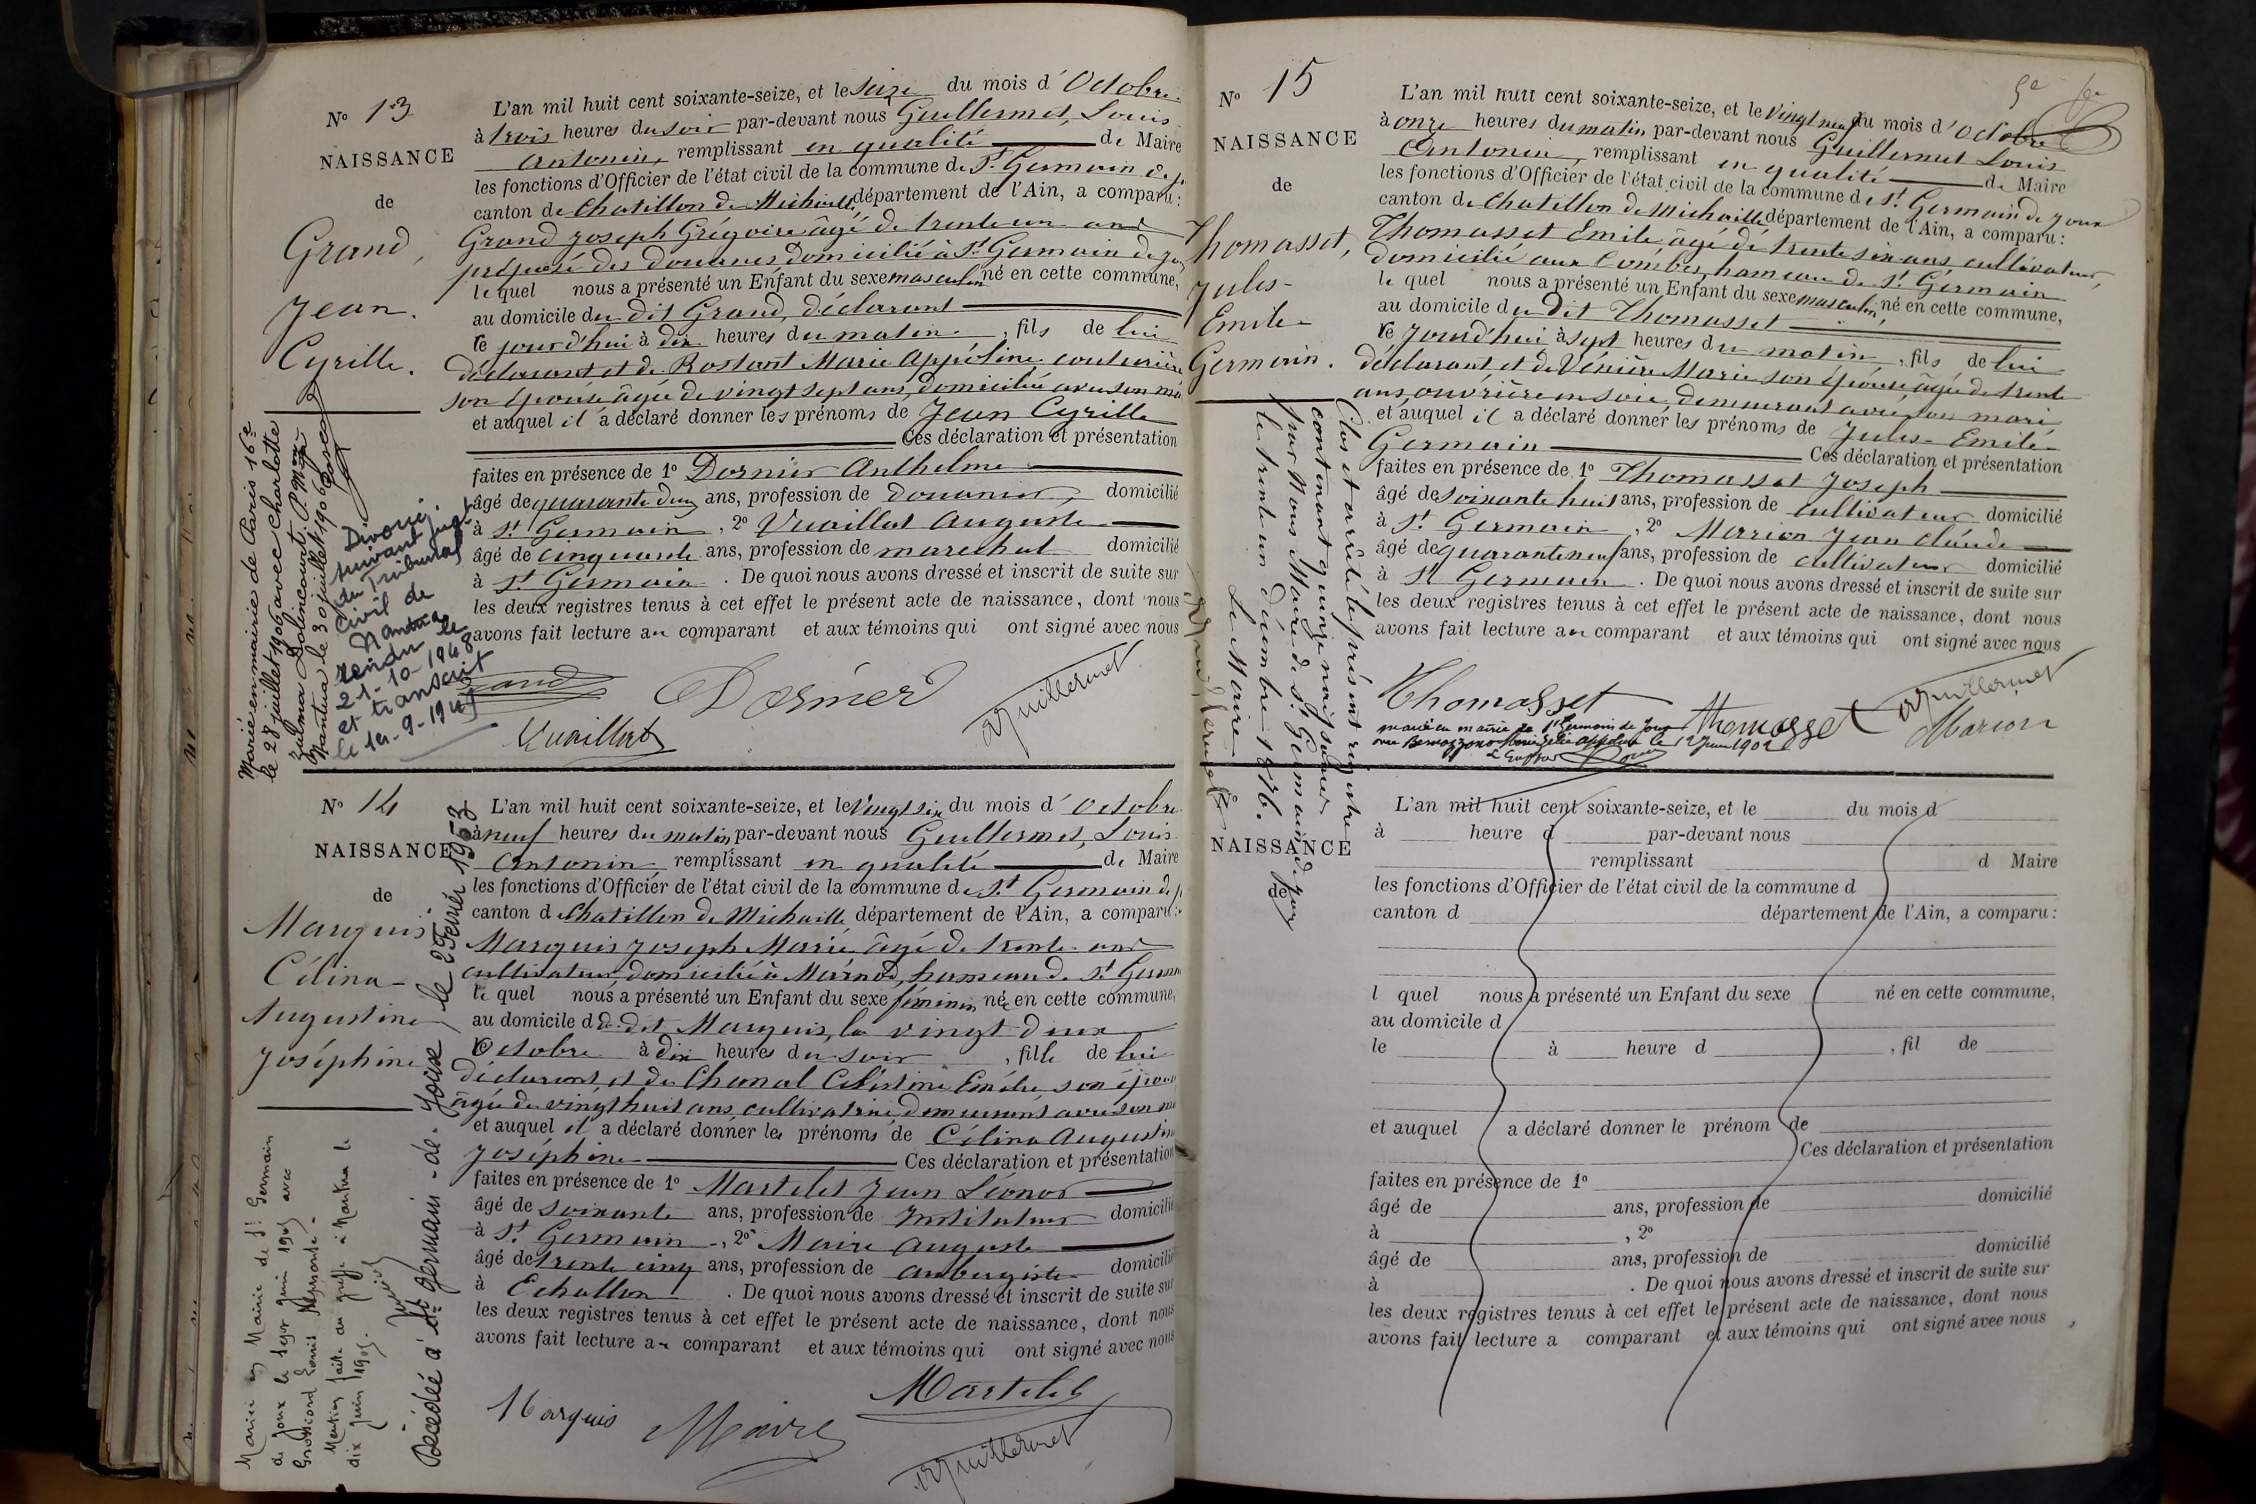 Nº 13
NAISSANCE
de
Grand,
Jean.
Cyrille.
L'an mil huit cent soixante-seize, et le seize du mois d'Octobre
à trois heures du soir par-devant nous Guillermet, Louis
Antonin, remplissant en qualité de Maire
les fonctions d'Officier de l'état civil de la commune de St Germain de j
canton de Chatillon de Michaille, département de l'Ain, a comparu :
Grand Joseph Grégoire âgé de trente un ans
préposé des douanes, domicilié à St Germain de Jou
le quel nous a présenté un Enfant du sexe masculin né en cette commune,
au domicile du dit Grand, déclarant
le jourd'hui à dix heures du matin, fils de lui
déclarant et de Rostant Marie Appoline couturière
son épouse âgée de vingt sept ans, domiciliée avec son ma
et auquel il a déclaré donner les prénoms de Jean Cyrille
Ces déclaration et présentation
faites en présence de 1º Dornier Anthelme
âgé de quarante deux ans, profession de douanier, domicilié
à St Germain, 2º Vuaillat Auguste
âgé de cinquante ans, profession de marechal domicilié
à St Germain. De quoi nous avons dressé et inscrit de suite sur
les deux registres tenus à cet effet le présent acte de naissance, dont nous
avons fait lecture au comparant et aux témoins qui ont signé avec nous
Grand Dornier Guillermet
Vuaillat
Marié en mairie de Paris 16e
le 28 juillet 1906 avec Charlotte
Zulma Dalincourt. P. Mon
Nantua le 30 juillet 1906
Divorcé
suivant jugt
du Tribunal
Civil de
Nantua
rendu le
21-10-1948
et transcrit
le 1er-9-1949
Nº 14
NAISSANCE
de
Marquis
Célina
Augustine
Joséphine
L'an mil huit cent soixante-seize, et le vingt six du mois d'Octobre
à neuf heures du matin par-devant nous Guillermet, Louis
Antonin remplissant en qualité de Maire
les fonctions d'Officier de l'état civil de la commune de St Germain de j
canton de Chatillon de Michaille département de l'Ain, a comparu :
Marquis Joseph Marie, âgé de trente ans
cultivateur, domicilié à Marnod, hameau de St Germ
le quel nous a présenté un Enfant du sexe féminin née en cette commune,
au domicile du dit Marquis, le vingt deux
Octobre à dix heures du soir, fille de lui
déclarant, et de Chanal Célestine Emélie, son épou
âgée de vingt huit ans, cultivatrice demeurant avec son m
et auquel il a déclaré donner les prénoms de Célina Augustine
Joséphine Ces déclaration et présentation
faites en présence de 1º Martelet Jean Léonor
âgé de soixante ans, profession de Instituteur domicilié
à St Germain, 2º Maire Auguste
âgé de trente cinq ans, profession de aubergiste domicilié
à Echallon. De quoi nous avons dressé et inscrit de suite sur
les deux registres tenus à cet effet le présent acte de naissance, dont nous
avons fait lecture au comparant et aux témoins qui ont signé avec nous
Marquis Maire Martelet
Guillermet
Mariée en Mairie de St Germain
de Joux le sept juin 1905 avec
Grossiord Louis
Mention faite au greffe à Nantua le
dix juin 1905.
Décédée à St germain-de-Joux le 2 Février 1953
Nº 15
NAISSANCE
de
Thomasset,
Jules-
Emile-
Germain.
L'an mil huit cent soixante-seize, et le vingt neuf du mois d'Octobre
à onze heures du matin par-devant nous Guillermet Louis
Antonin, remplissant en qualité de Maire
les fonctions d'Officier de l'état civil de la commune de St Germain de Joux
canton de Chatillon de Michaille département de l'Ain, a comparu :
Thomasset Emile âgé de trente six ans cultivateur,
domicilié aux Combes, hameau de St Germain
le quel nous a présenté un Enfant du sexe masculin, né en cette commune,
au domicile du dit Thomasset
le jourd'hui à sept heures du matin, fils de lui
déclarant, et de Vénière Marie son épouse âgée de trente
ans, ouvrière en soie, demeurant avec son mari
et auquel il a déclaré donner les prénoms de Jules-Emile
Germain Ces déclaration et présentation
faites en présence de 1º Thomasset Joseph
âgé de soixante huit ans, profession de cultivateur domicilié
à St Germain, 2º Marion Jean Claude
âgé de quarante neuf ans, profession de cultivateur domicilié
à St Germain. De quoi nous avons dressé et inscrit de suite sur
les deux registres tenus à cet effet le présent acte de naissance, dont nous
avons fait lecture au comparant et aux témoins qui ont signé avec nous
Thomasset Thomasset Guillermet
Marion
marié en mairie de St Germain de Joux
le 12 Juin 1902
Clos et arrêté le présent registre
contenant quinze naissances
Par Nous Maire de St Germain de Joux
le trente un décembre 1876.
Le Maire
NAISSANCE
de
L'an mil huit cent soixante-seize, et le du mois d
à heure d par-devant nous
remplissant d Maire
les fonctions d'Officier de l'état civil de la commune d
canton d département de l'Ain, a comparu :
l quel nous a présenté un Enfant du sexe né en cette commune,
au domicile d
le à heure d , fil de
et auquel a déclaré donner le prénom de
Ces déclaration et présentation
faites en présence de 1º
âgé de ans, profession de domicilié
à , 2º
âgé de ans, profession de domicilié
à . De quoi nous avons dressé et inscrit de suite sur
les deux registres tenus à cet effet le présent acte de naissance, dont nous
avons fait lecture a comparant et aux témoins qui ont signé avec nous